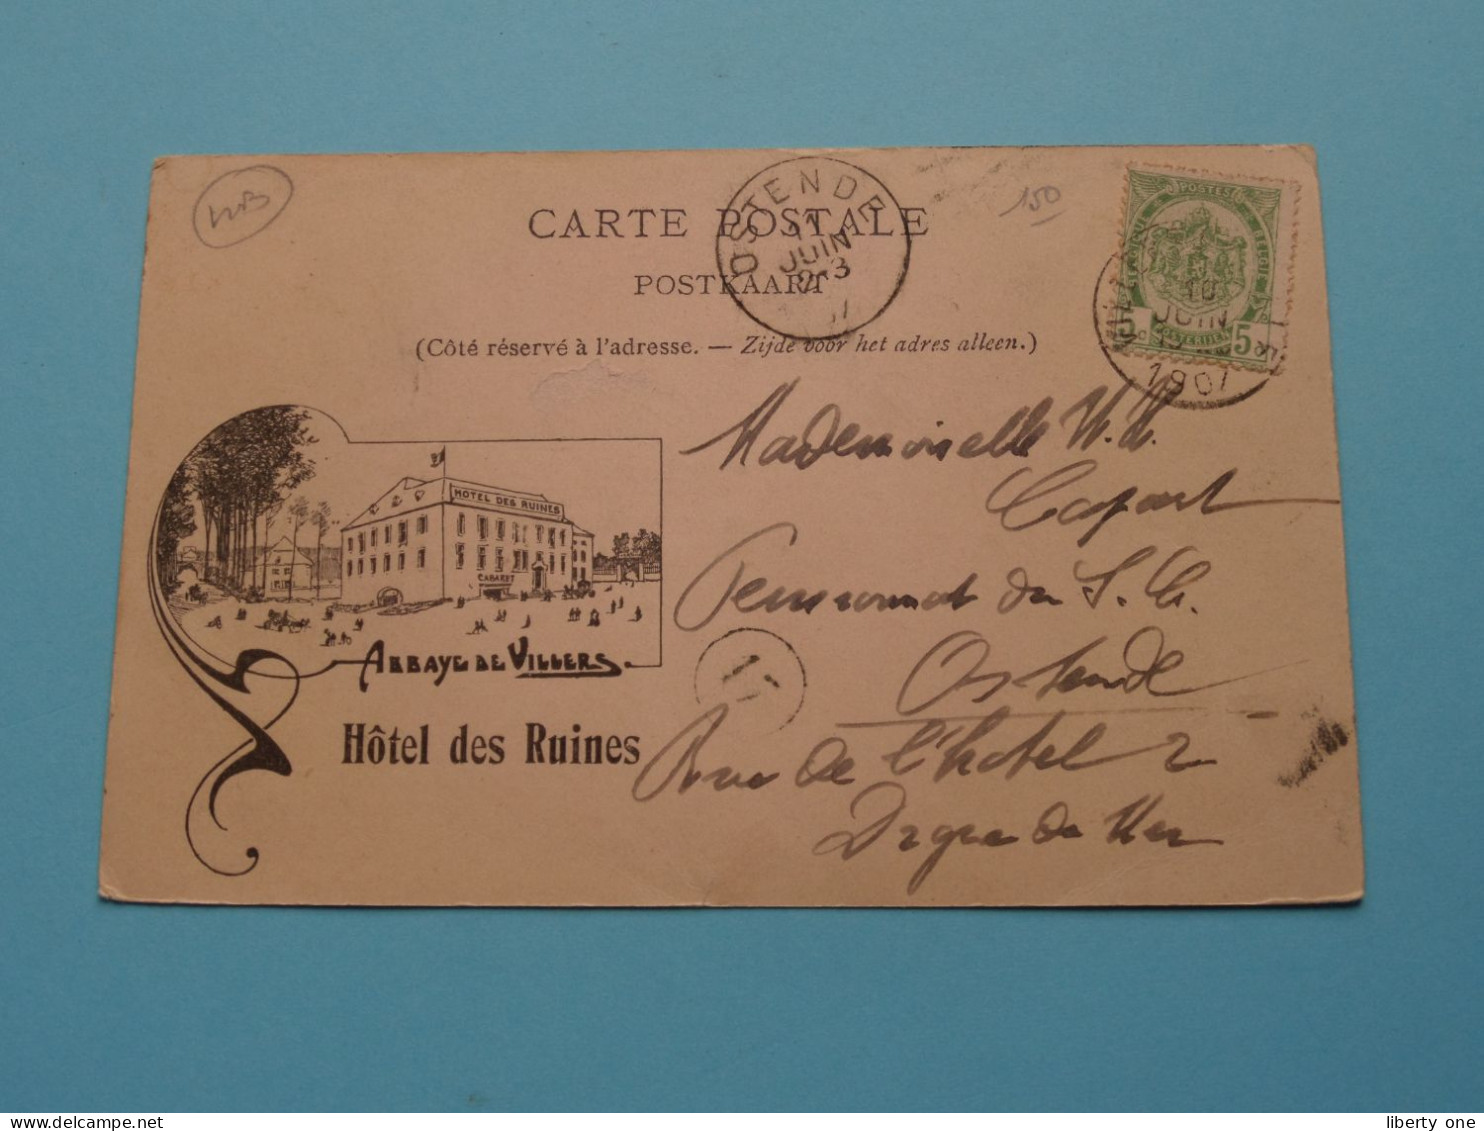 WB
150
OSTENDE
11
JUIN
2-3
07
CARTE POSTALE
POSTKAART
(Côté réservé à l'adresse. — Zijde voor het adres alleen.)
POSTES
BELGIQUE
BELGIË
POSTERIJEN
5c
10
JUIN
1907
HOTEL DES RUINES
CABARET
ABBAYE DE VILLERS.
Hôtel des Ruines
Mademoiselle M. M.
Capart
Pensionnat du S. C.
Ostende
Rue de l'hotel 2
Digue de Mer
liberty one